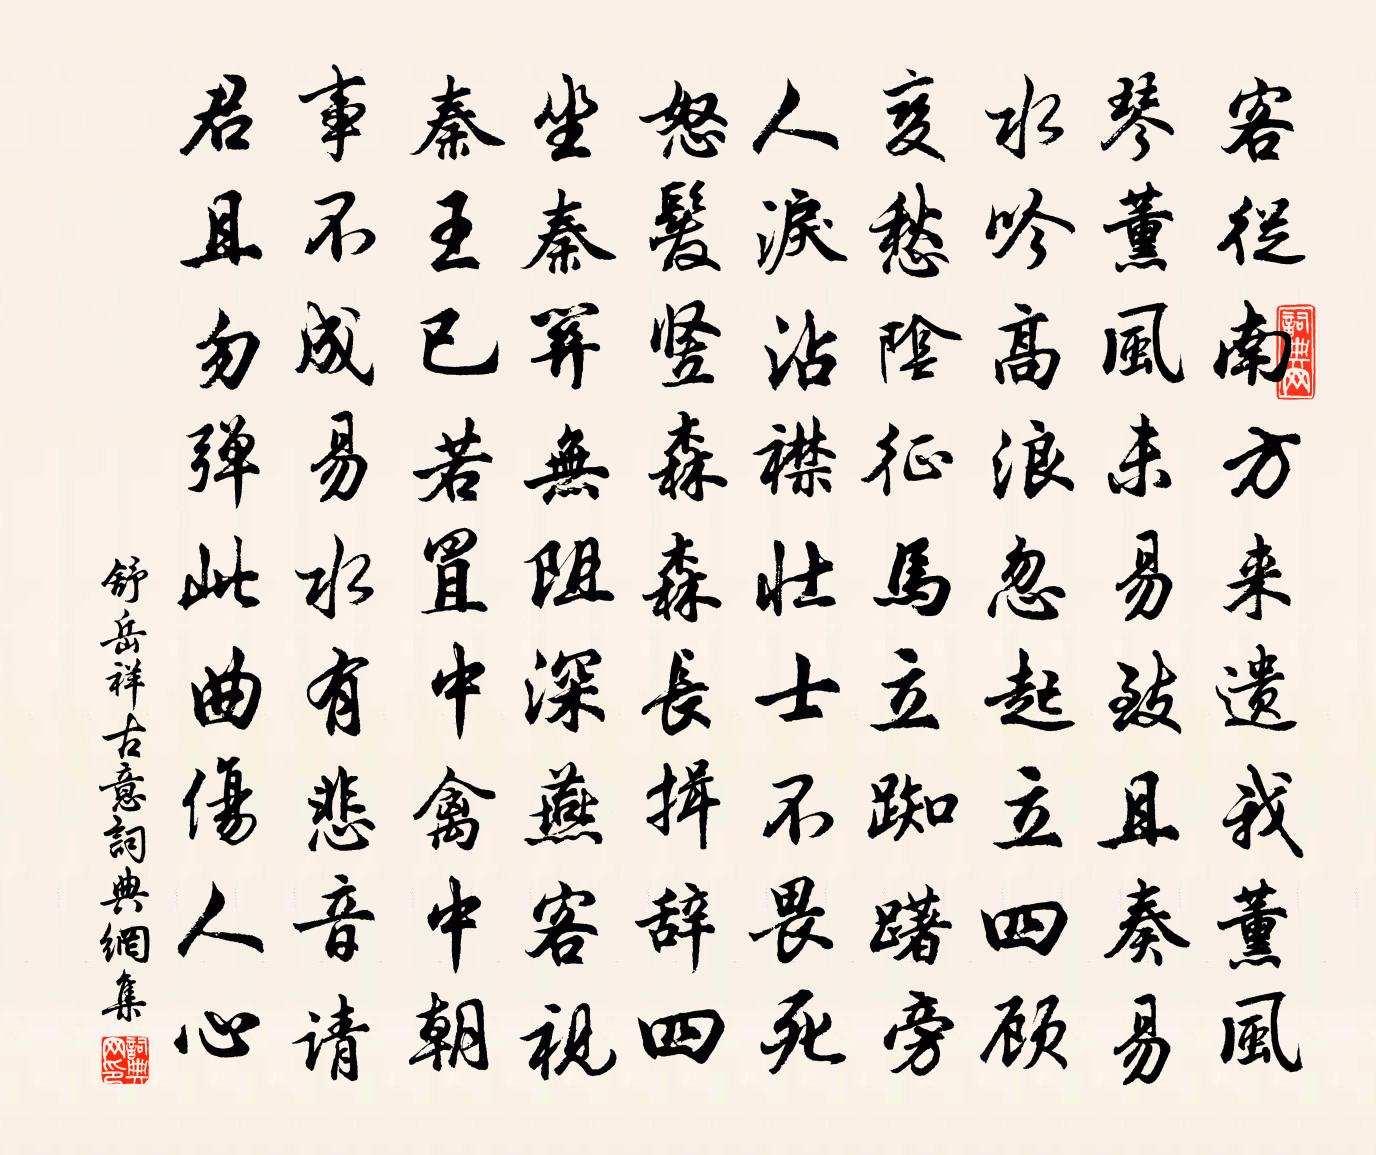 客從南方来遗我薰風
琴薰風未易致且奏易
水吟高浪忽起立四顾
变愁陰征馬立踟躇旁
人淚沾襟壮士不畏死
怒髮竖森森長揖辞四
坐秦關無阻深燕客視
秦王已若置中禽中朝
事不成易水有悲音请
君且勿弹此曲傷人心
舒岳祥古意詞典網集
詞典网
詞典网